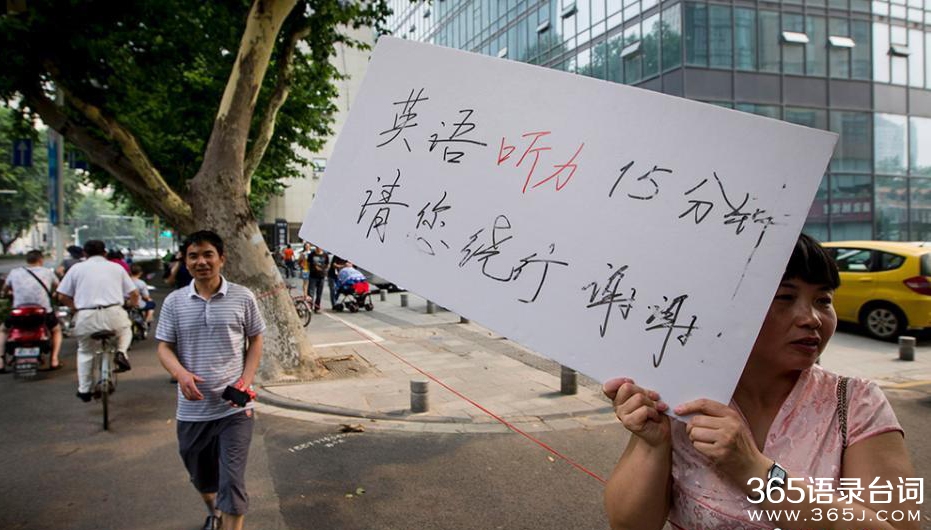 英语听力 15分钟
请您绕行 谢谢.
365语录台词
www.365j.com